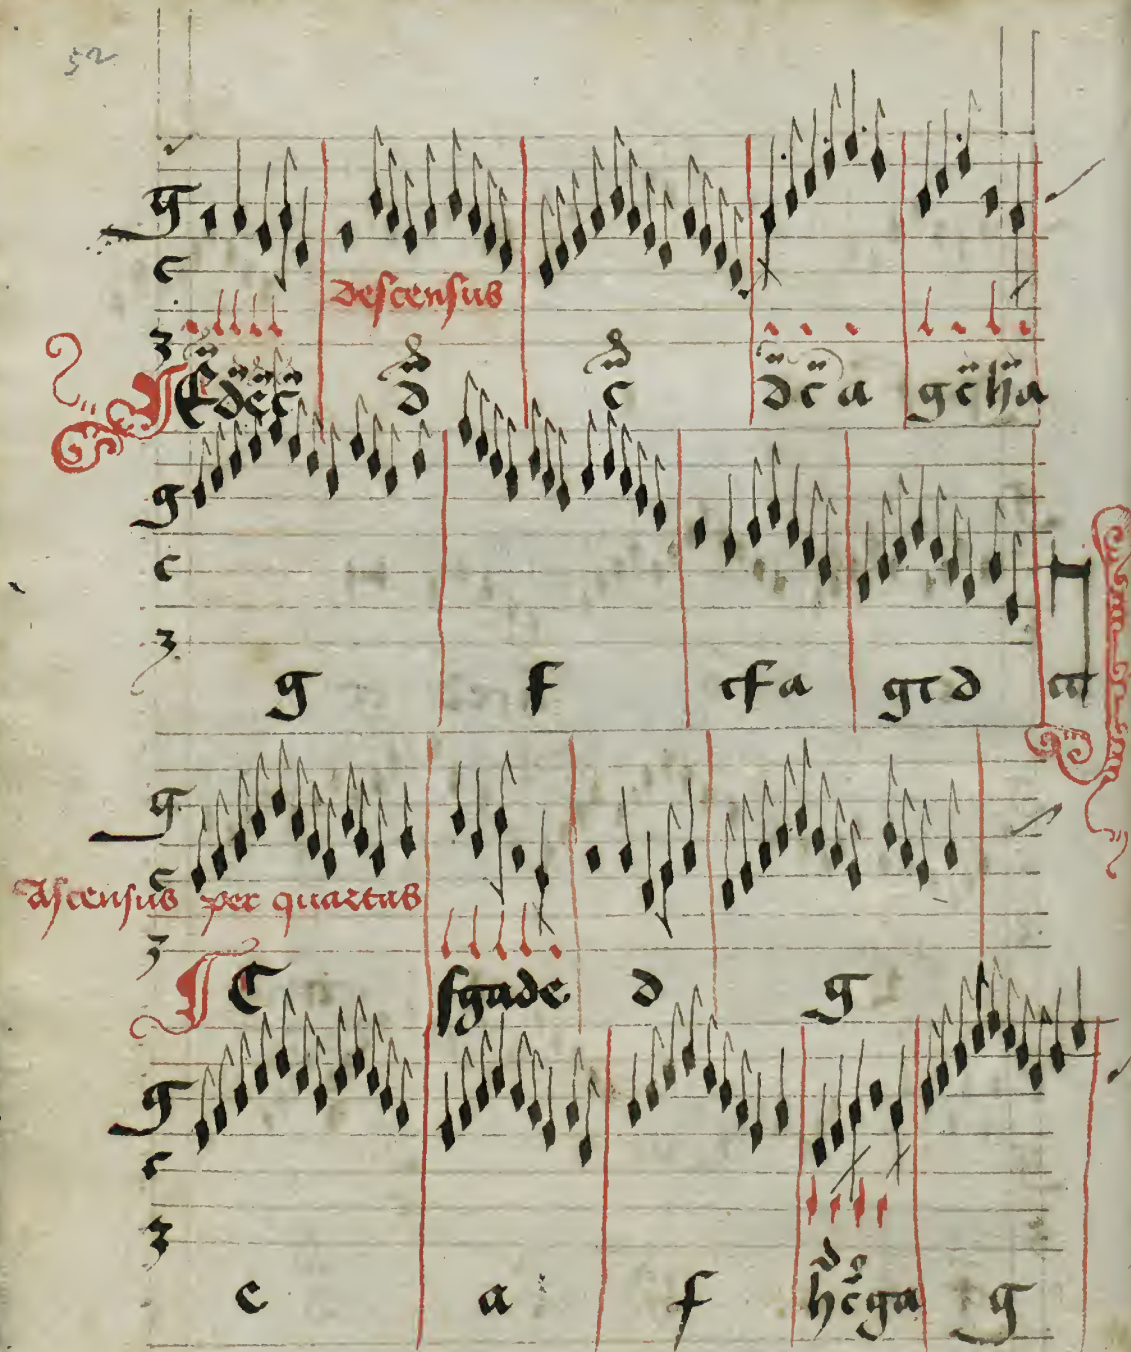 52
g
c
Descensus
e d e c d c d c a g c h a
g
c
g f c f a g c d
g
c
Ascensus per quartas
C f g a d e d g
g
c
e a f h c g a g